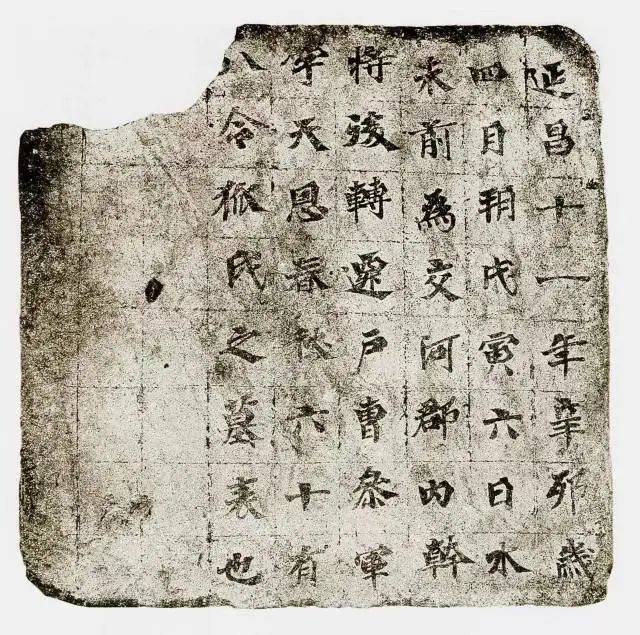 延昌十一年辛卯歲
四月朔戊寅六日水
未前爲交河郡内幹
將後轉遷戶曹叅軍
字天恩春秋六十有
八令狐氏之墓表也